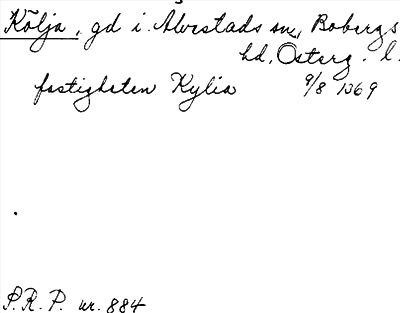 Kölja, gd i Alvestads sn, Bobergs
hd, Österg. l.
fastigheten Kylia 9/8 1369
P.R.P. nr. 884